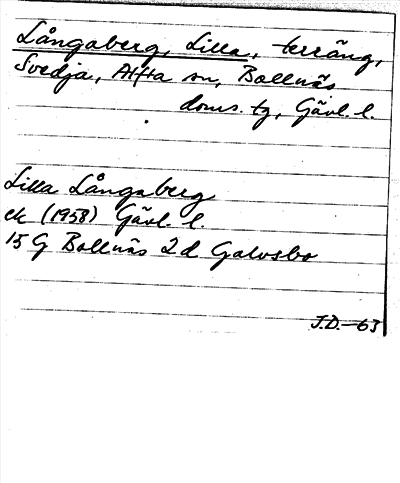 Långaberg, Lilla, terräng,
Svedja, Alfta sn, Bollnäs
doms. tg, Gävl. l.
Lilla Långaberg
ek (1958) Gävl. l.
15 G Bollnäs 2d Galvsbo
J.D.-63